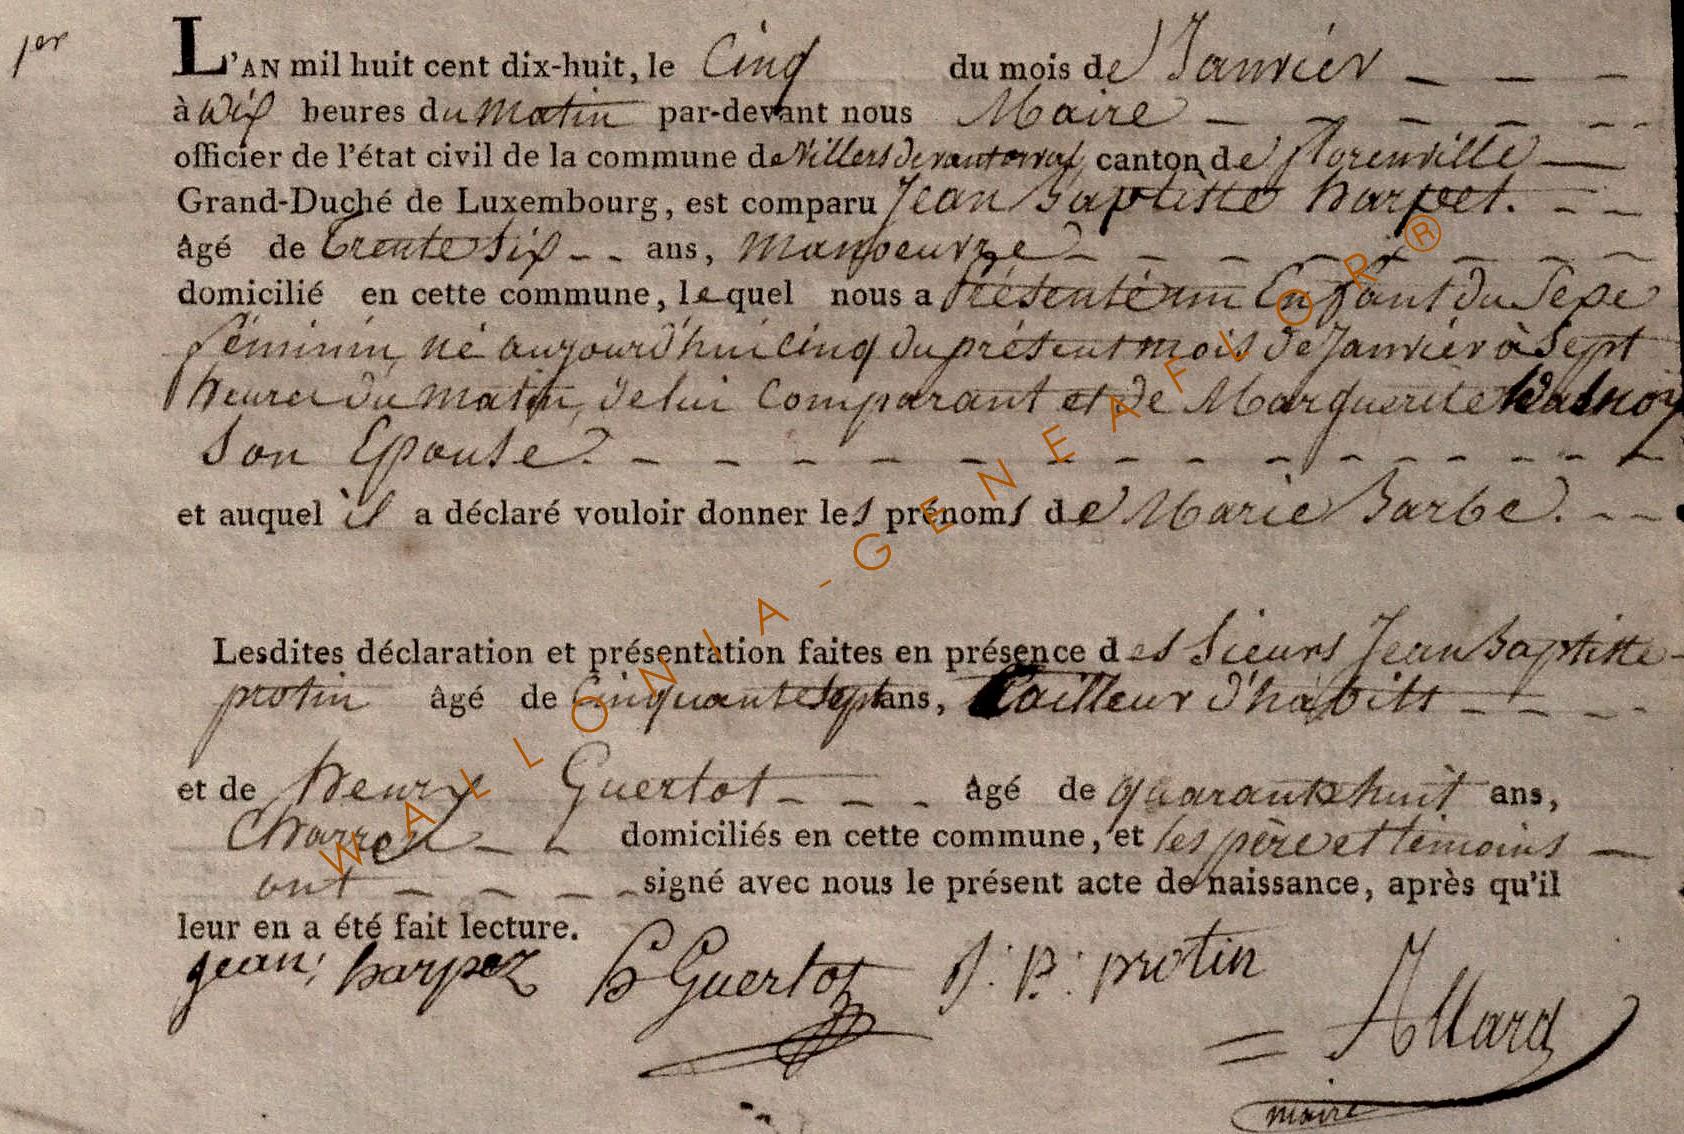 1er
L'AN mil huit cent dix-huit, le Cinq du mois de Janvier
à dix heures du matin par-devant nous Maire
officier de l'état civil de la commune de Villers devant orval, canton de florenville
Grand-Duché de Luxembourg, est comparu Jean Baptiste harpet.
âgé de trente Six ans, manoeuvre
domicilié en cette commune, lequel nous a présenté un Enfant du Sexe
féminin, né aujourd'hui cinq du présent mois de Janvier à Sept
heures du matin, de lui Comparant et de Marguerite
Son Epouse.
et auquel il a déclaré vouloir donner les prénoms de Marie Barbe.
Lesdites déclaration et présentation faites en présence des Sieurs Jean Baptiste
protin âgé de Cinquante Sept ans, tailleur d'habits
et de henry Guertot âgé de quarante huit ans,
domiciliés en cette commune, et les père et témoins
ont signé avec nous le présent acte de naissance, après qu'il
leur en a été fait lecture.
jean harpez h Guertot J: B: protin
Allard
maire
WALLONIA-GENEAFLOR®